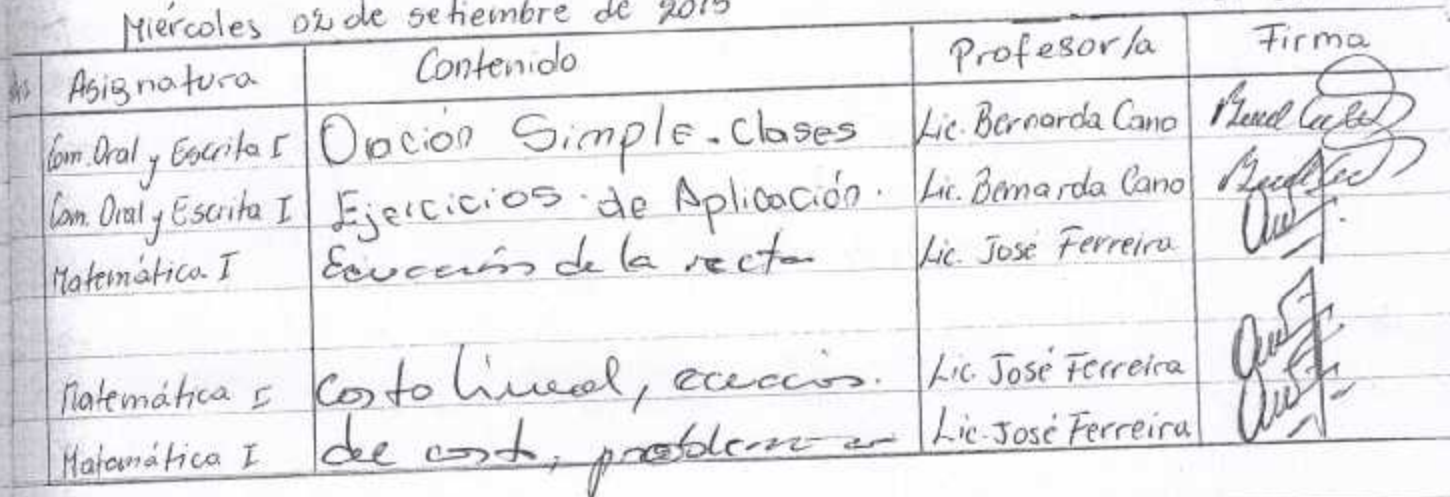 Miércoles 02 de setiembre de 2015
Asignatura Contenido Profesor/a Firma
Com. Oral y Escrita I Oración Simple - Clases Lic. Bernarda Cano
Com. Oral y Escrita I Ejercicios de Aplicación. Lic. Bernarda Cano
Matemática I Ecuación de la recta Lic. José Ferreira
Matemática I Costo lineal, ecuación. Lic. José Ferreira
Matemática I de costo, problema Lic. José Ferreira